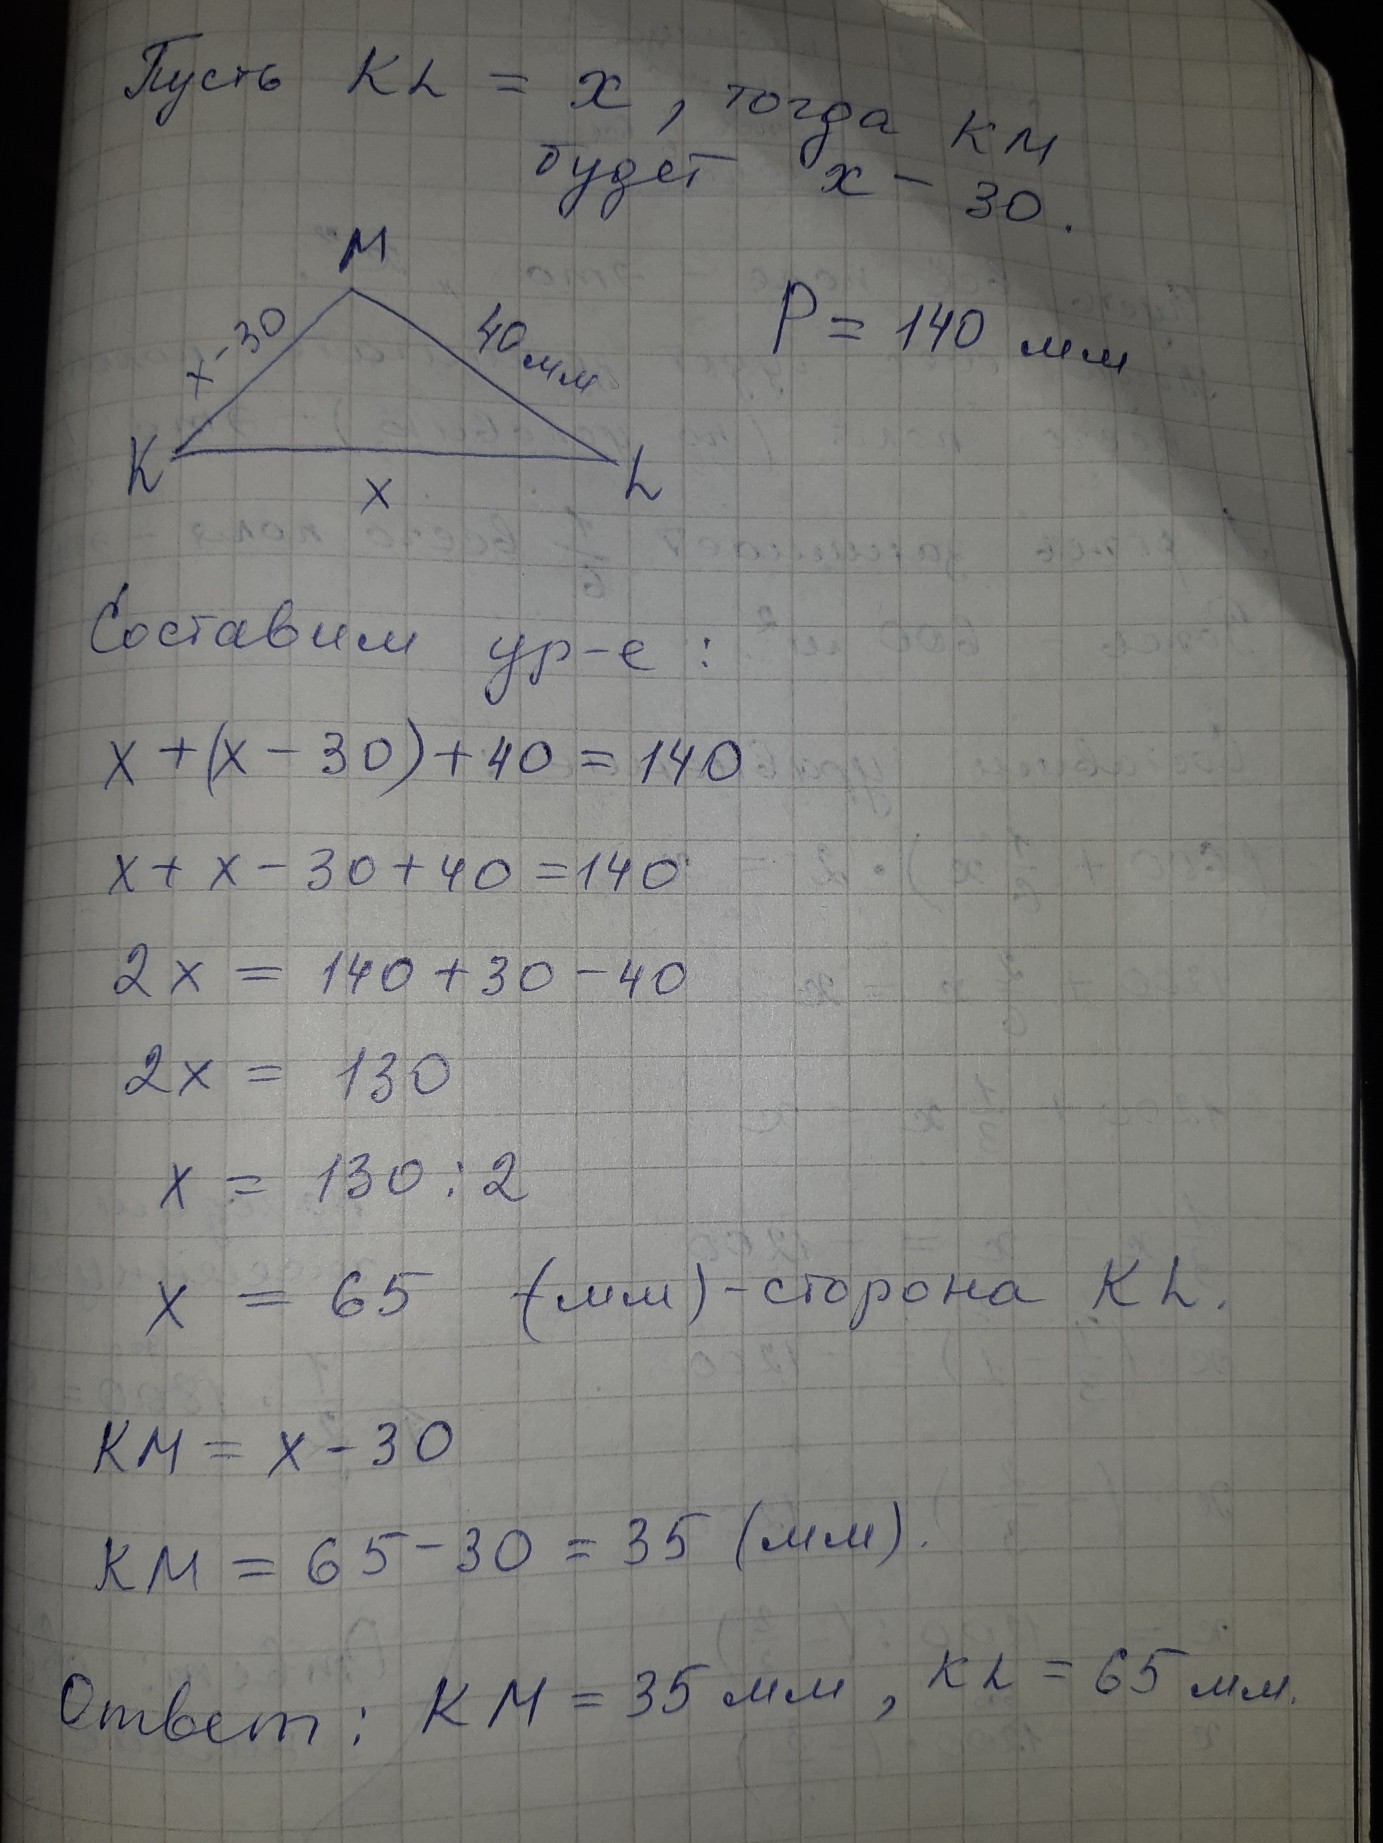 Пусть KL = x, тогда KM
будет x - 30.
M
x-30
40мм
P = 140 мм
K
x
L
Составим ур-е:
x+(x-30)+40=140
x+x-30+40=140
2x = 140+30-40
2x = 130
x = 130:2
x = 65 (мм)-сторона KL.
KM = x-30
KM = 65-30 = 35 (мм).
Ответ: KM = 35 мм, KL = 65 мм.